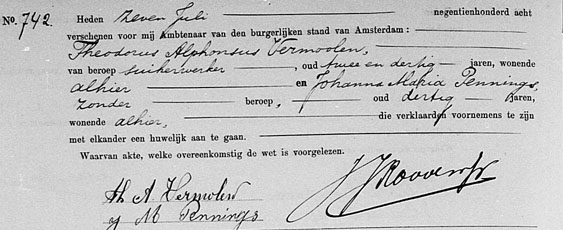 No. 742. Heden zeven Juli negentienhonderd acht
verschenen voor mij Ambtenaar van den burgerlijken stand van Amsterdam:
Theodorus Alphonsus Vermoolen,
van beroep suikerwerker, oud twee en dertig jaren, wonende
alhier en Johanna Maria Pennings,
zonder beroep, oud dertig jaren,
wonende alhier, die verklaarden voornemens te zijn
met elkander een huwelijk aan te gaan.
Waarvan akte, welke overeenkomstig de wet is voorgelezen.
Th A Vermolen
J M Pennings